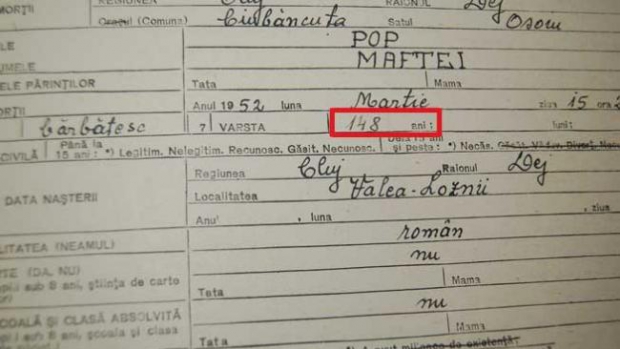 MORȚII REGIUNEA Cluj RAIONUL Dej
Orașul (Comuna) Ciubăncuța Satul Osoiu
LE POP
UMELE MAFTEI
ELE PĂRINȚILOR Tata Mama
ORȚII Anul 1952 luna Martie ziua 15 ora
bărbătesc 7 VARSTA 148 ani: luni:
CIVILĂ Până la 15 ani: *) Legitim. Nelegitim. Recunosc. Găsit. Necunosc. și peste: *) Necăs.
DATA NAȘTERII Regiunea Cluj Raionul Dej
Localitatea Valea-Loznii
Anu' , luna , ziua
LITATEA (NEAMUL) român
TE (DA, NU) nu
sub 8 ani, știința de carte Tata Mama
COALĂ ȘI CLASĂ ABSOLVITĂ nu
sub 8 ani, școala și clasa Tata Mama